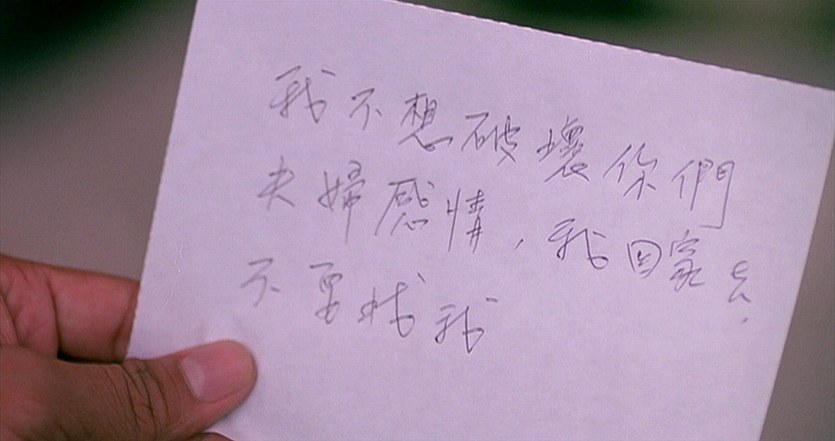 我不想破壞你們
夫婦感情，我回家去.
不要找我